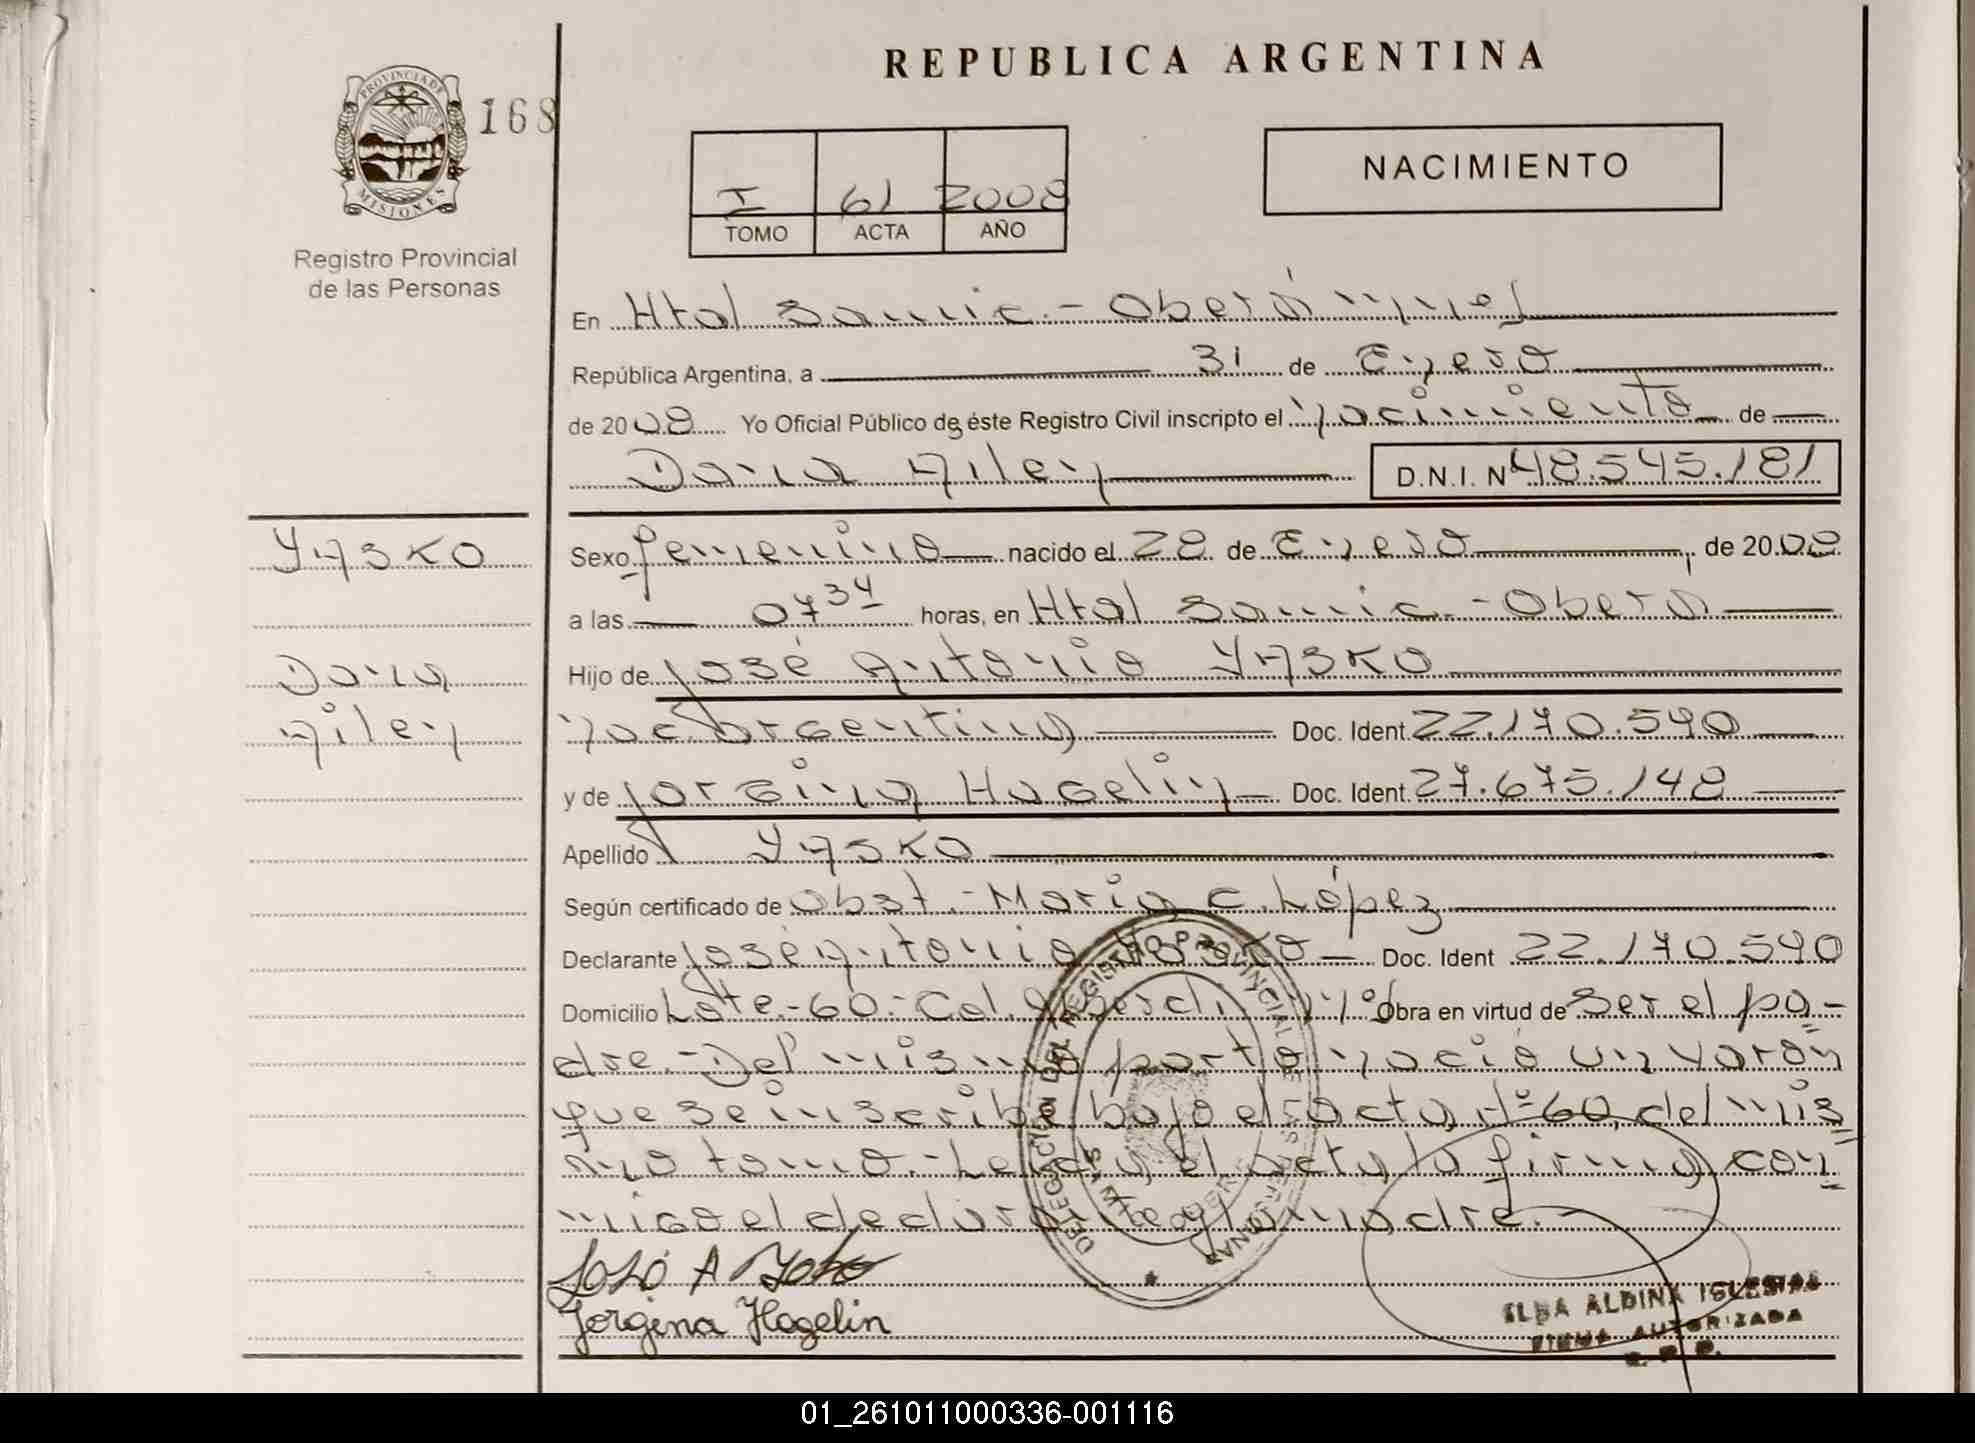 REPUBLICA ARGENTINA
PROVINCIA DE
MISIONES
168
Registro Provincial
de las Personas
I 61 2008
TOMO ACTA AÑO
NACIMIENTO
En Htal Samic - Oberá Mnes
República Argentina, a 31 de Enero
de 2008 Yo Oficial Público de éste Registro Civil inscripto el nacimiento de
Dana Ailen D.N.I. Nº 48.545.181
YASKO
Sexo femenino nacido el 28 de Enero de 2008
a las 07 34 horas, en Htal Samic - Oberá
Dana
Hijo de José Antonio YASKO
Ailen
nac. argentina Doc. Ident. 22.170.590
y de Jorgina Hagelin Doc. Ident. 27.675.148
Apellido YASKO
Según certificado de Obst. - Maria C. López
Declarante José Antonio YASKO Doc. Ident 22.170.590
Domicilio Lote - 60 - Col. Alberdi Mnes Obra en virtud de ser el pa-
dre. - Del mismo parto nació un varón
que se inscribe bajo el acta Nº 60, del mis
mo tomo. - Leida el acta, la firma con
migo el declarante y la madre. -
José A Yasko
Jorgina Hagelin
DELEGACIÓN DEL REGISTRO PROVINCIAL DE LAS PERSONAS
ELBA ALDINA IGLESIAS
FIRMA AUTORIZADA
R. P. P.
01_261011000336-001116